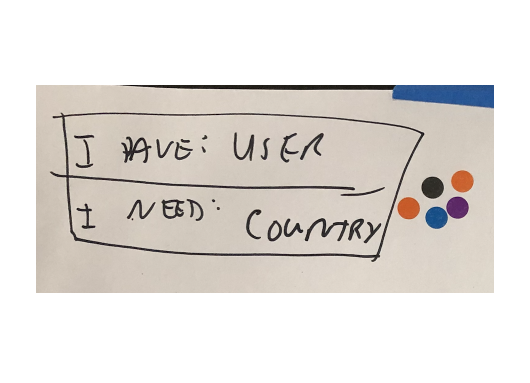 I HAVE: USER
I NEED: COUNTRY